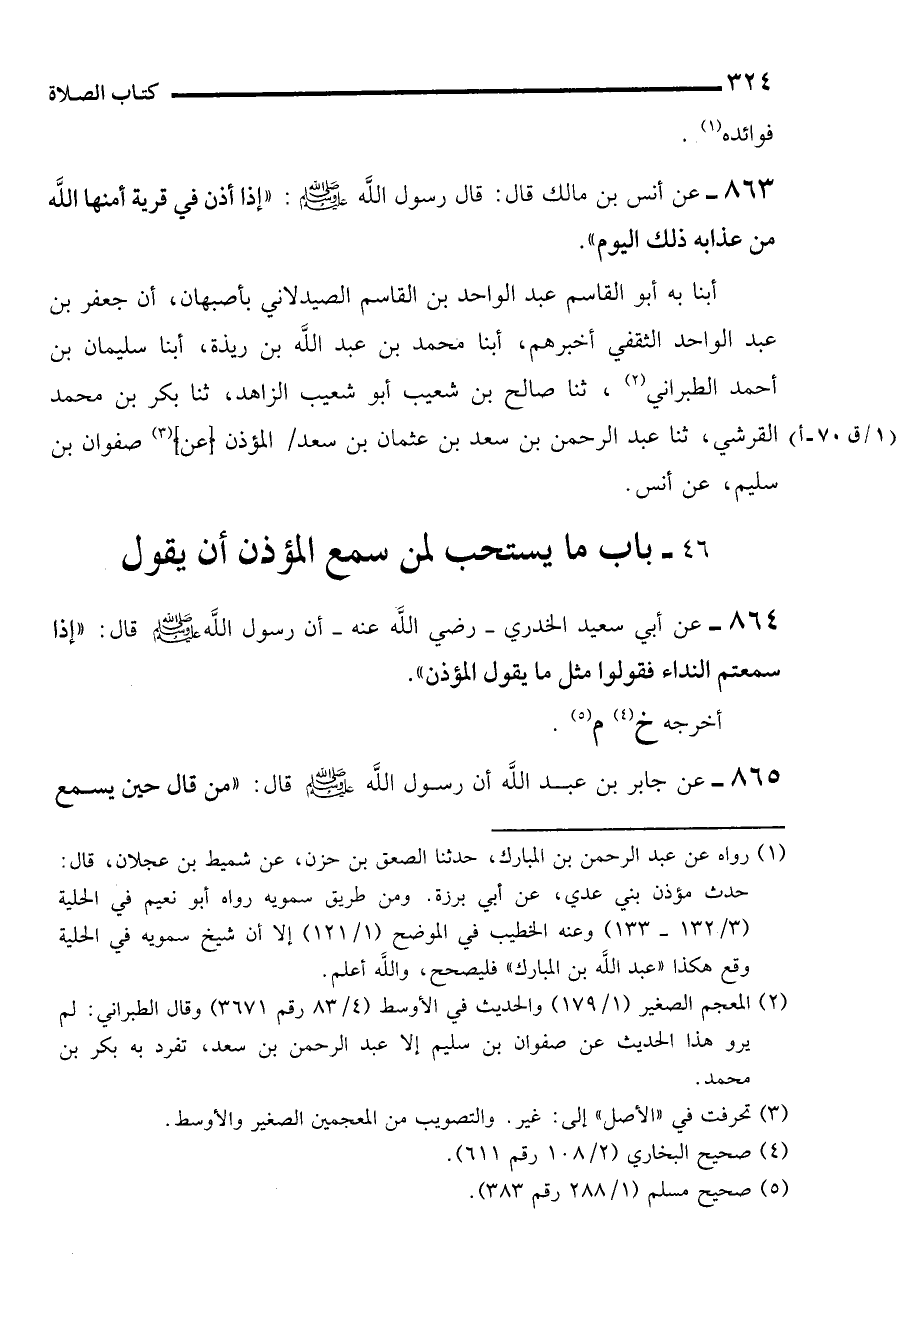 ٣٢٤ كتاب الصلاة
فوائده(١) .
٨٦٣ ـ عن أنس بن مالك قال: قال رسول اللَّه ﷺ : «إذا أذن في قرية أمنها اللَّه
من عذابه ذلك اليوم».
أبنا به أبو القاسم عبد الواحد بن القاسم الصيدلاني بأصبهان، أن جعفر بن
عبد الواحد الثقفي أخبرهم، أبنا محمد بن عبد اللَّه بن ريذة، أبنا سليمان بن
أحمد الطبراني(٢) ، ثنا صالح بن شعيب أبو شعيب الزاهد، ثنا بكر بن محمد
(١/ق ٧٠-أ) القرشي، ثنا عبد الرحمن بن سعد بن عثمان بن سعد/ المؤذن {عن}(٣) صفوان بن
سليم، عن أنس.
٤٦ ـ باب ما يستحب لمن سمع المؤذن أن يقول
٨٦٤ ـ عن أبي سعيد الخدري ـ رضي اللَّه عنه ـ أن رسول اللَّه ﷺ قال: «إذا
سمعتم النداء فقولوا مثل ما يقول المؤذن».
أخرجه خ(٤) م(٥) .
٨٦٥ ـ عن جابر بن عبد اللَّه أن رسول اللَّه ﷺ قال: «من قال حين يسمع
(١) رواه عن عبد الرحمن بن المبارك، حدثنا الصعق بن حزن، عن شميط بن عجلان، قال:
حدث مؤذن بني عدي، عن أبي برزة. ومن طريق سمويه رواه أبو نعيم في الحلية
(٣/ ١٣٢ ـ ١٣٣) وعنه الخطيب في الموضح (١/ ١٢١) إلا أن شيخ سمويه في الحلية
وقع هكذا «عبد اللَّه بن المبارك» فليصحح، واللَّه أعلم.
(٢) المعجم الصغير (١/ ١٧٩) والحديث في الأوسط (٤/ ٨٣ رقم ٣٦٧١) وقال الطبراني: لم
يرو هذا الحديث عن صفوان بن سليم إلا عبد الرحمن بن سعد، تفرد به بكر بن
محمد.
(٣) تحرفت في «الأصل» إلى: غير. والتصويب من المعجمين الصغير والأوسط.
(٤) صحيح البخاري (٢/ ١٠٨ رقم ٦١١).
(٥) صحيح مسلم (١/ ٢٨٨ رقم ٣٨٣).